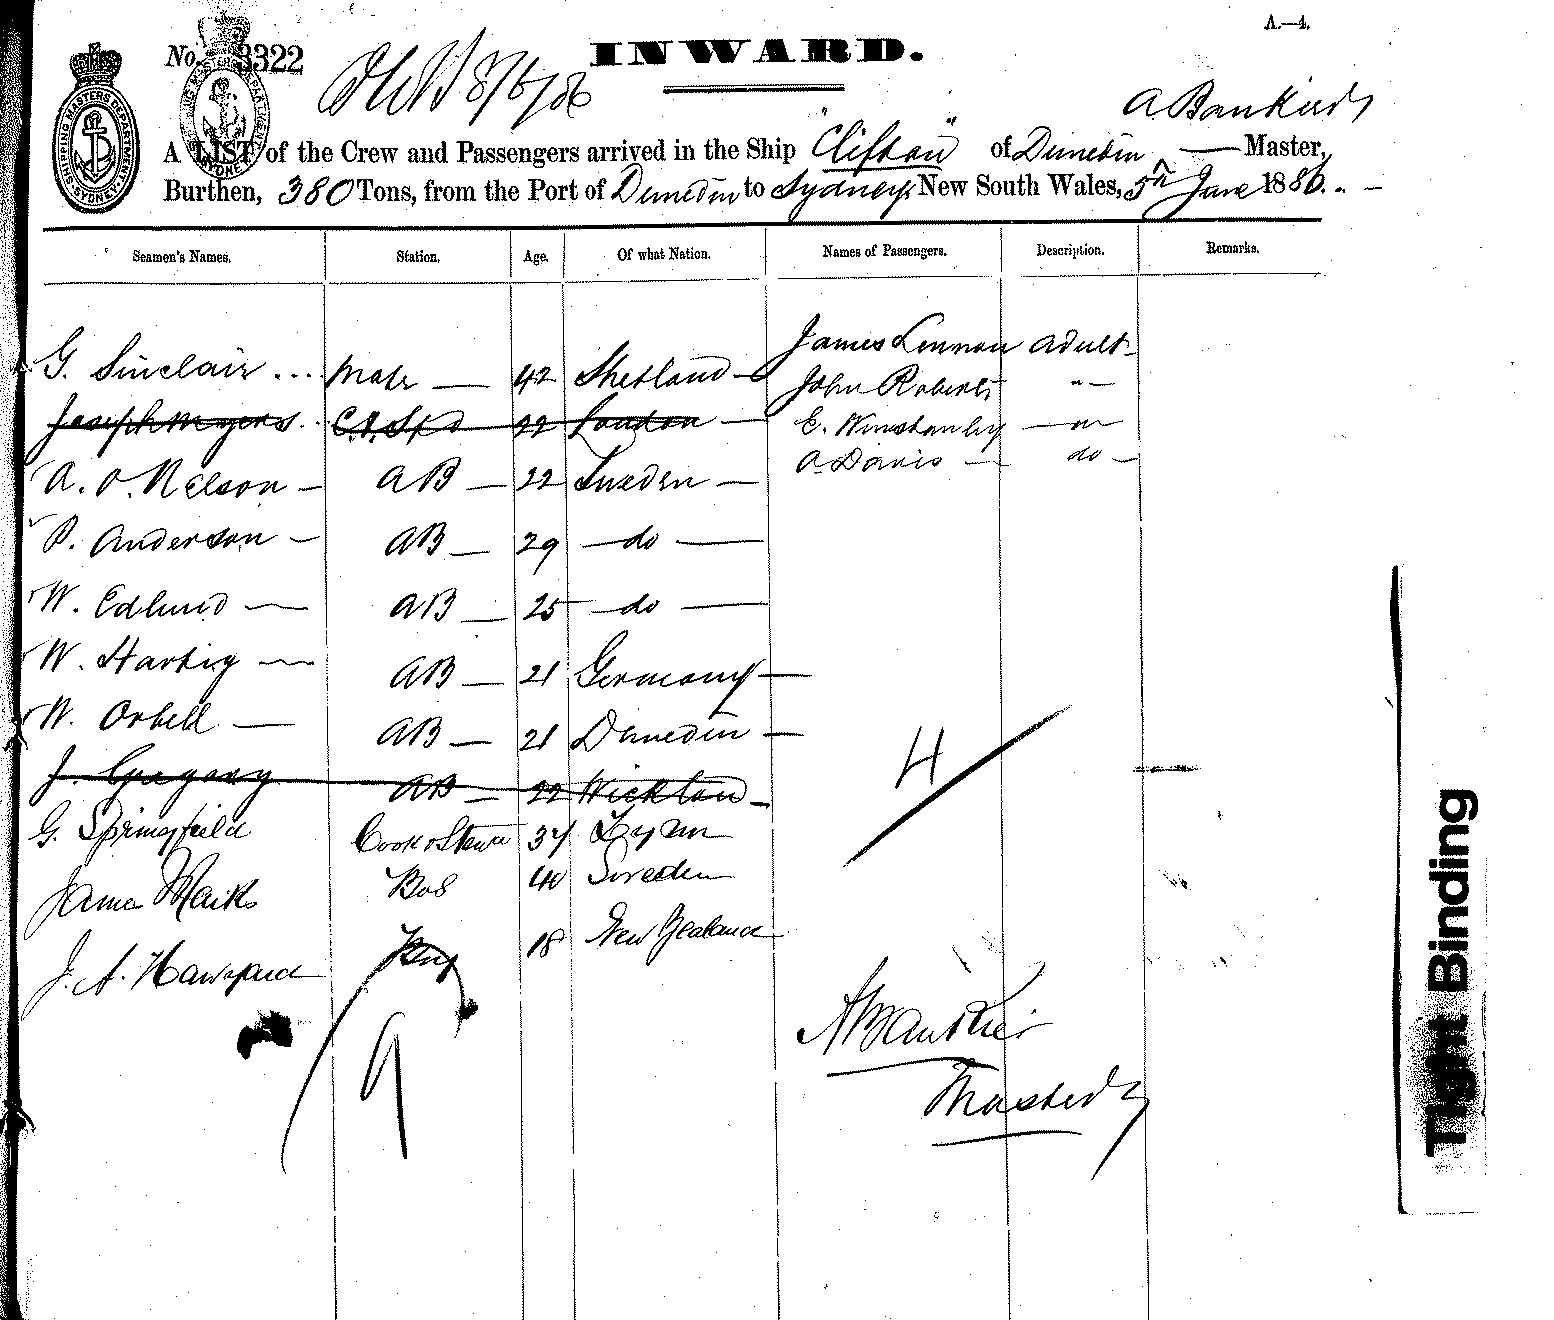 A.—4.
No. 3322
INWARD.
8/6/86
A LIST of the Crew and Passengers arrived in the Ship "Clifton" of Dunedin — Master,
Burthen, 380 Tons, from the Port of Dunedin to Sydney, New South Wales, 5th June 1886.
SHIPPING MASTERS DEPARTMENT SYDNEY
Seamen's Names. Station. Age. Of what Nation. Names of Passengers. Description. Remarks.
G. Sinclair ... Mate — 42 Shetland — James Lennon adult
Joseph Myers 22 London — John Roberts " —
E. Winstanley
A. O. Nelson — AB — 22 Sweden — A Davis — do —
P. Anderson — AB — 29 — do —
W. Edlund — AB — 25 — do —
W. Hartig — AB — 21 Germany —
W. Orbell — AB — 21 Dunedin —
J. Gregory AB — 22
G. Springfield Cook & Stew 34 Lynn
James Maiks Bos 40 Sweden
J. A. Hansford Boy 18 New Zealand
4
9
Master
Tight Binding